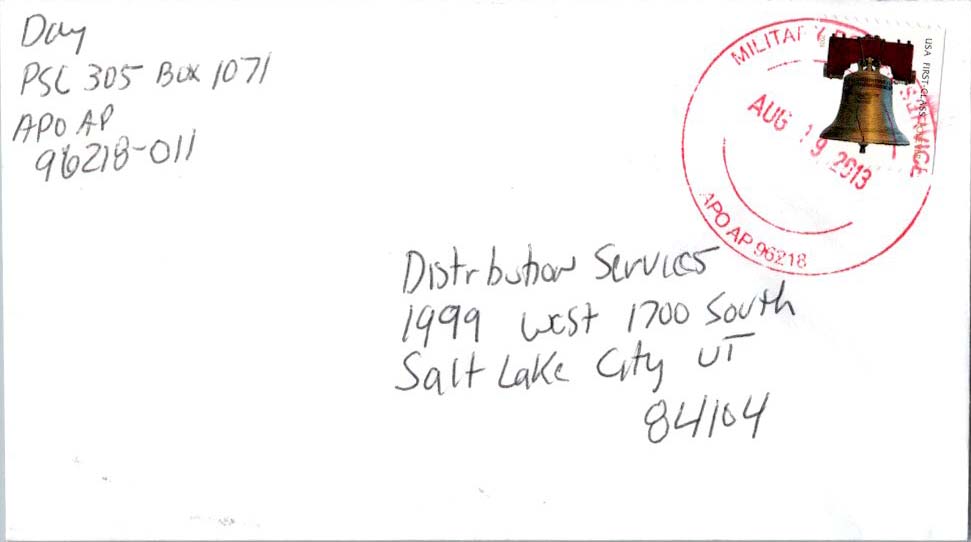 Day
PSC 305 Box 1071
APO AP
96218-011
MILITARY POSTAL SERVICE
AUG 19 2013
APO AP 96218
USA FIRST-CLASS FOREVER
Distribution Services
1999 West 1700 South
Salt Lake City UT
84104